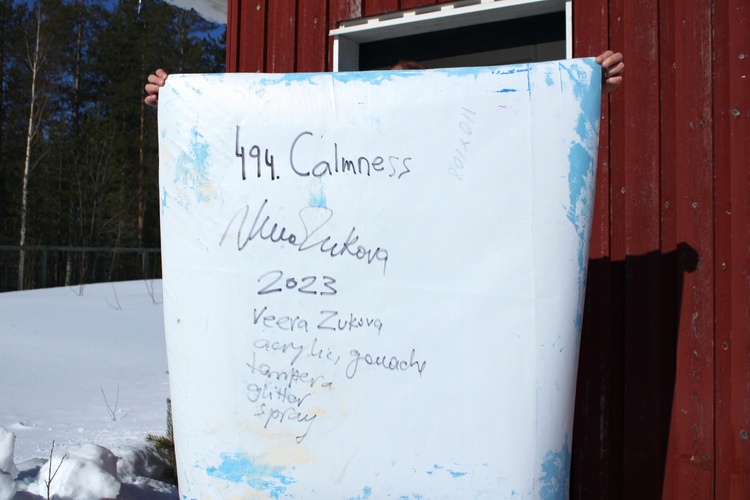 494. Calmness
Veera Zukova
2023
Veera Zukova
acrylic, gouache
tampera
glitter
spray
110x108